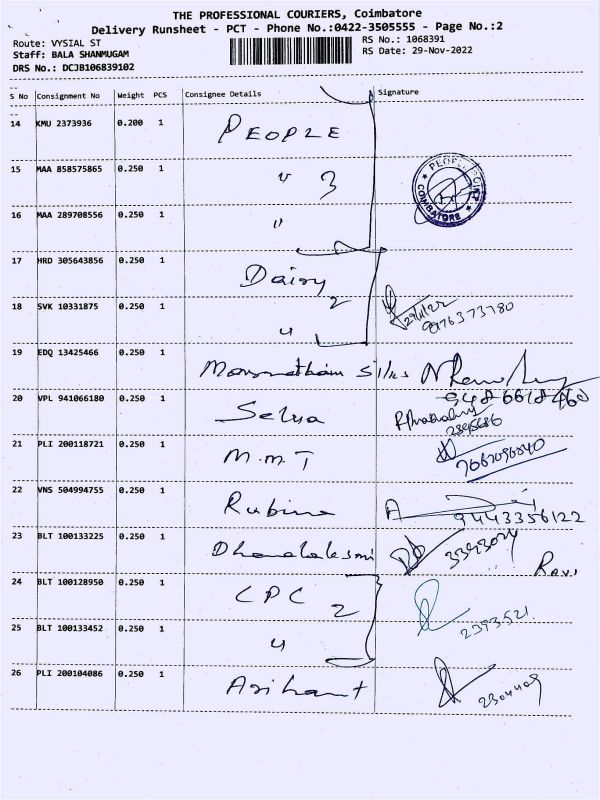 THE PROFESSIONAL COURIERS, Coimbatore
Delivery Runsheet - PCT - Phone No.:0422-3505555 - Page No.:2
Route: VYSIAL ST
RS No.: 1068391
Staff: BALA SHANMUGAM
RS Date: 29-Nov-2022
DRS No.: DCJB106839102
S No Consignment No Weight PCS Consignee Details Signature
14 KMU 2373936 0.200 1 PEOPLE
15 MAA 858575865 0.250 1 " 3
PEOPLE
COIMBATORE
16 MAA 289708556 0.250 1 "
17 HRD 305643856 0.250 1 Dairy 2
18 SVK 10331875 0.250 1 " 29/11/22
9176373780
19 EDQ 13425466 0.250 1 Silks
9486618460
20 VPL 941066180 0.250 1 Selva
2395686
21 PLI 200118721 0.250 1 M.M.T
22 VNS 504994755 0.250 1 Rubina 9443356122
23 BLT 100133225 0.250 1 Dhanalaksmi Ravi
24 BLT 100128950 0.250 1 CPC 2 2393521
25 BLT 100133452 0.250 1 "
26 PLI 200104086 0.250 1 Arihant 2304409